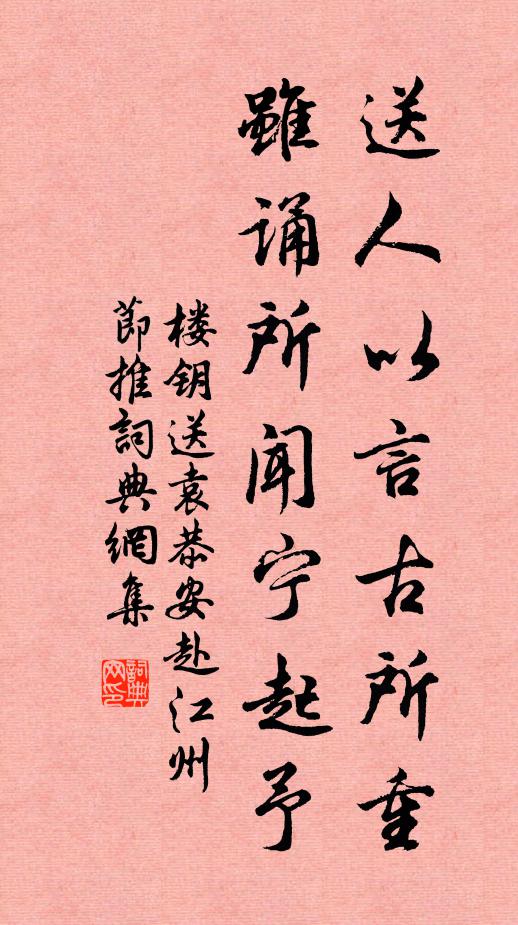 送人以言古所重
雖诵所闻宁起予
楼钥送袁恭安赴江州
節推詞典網集
詞典网印